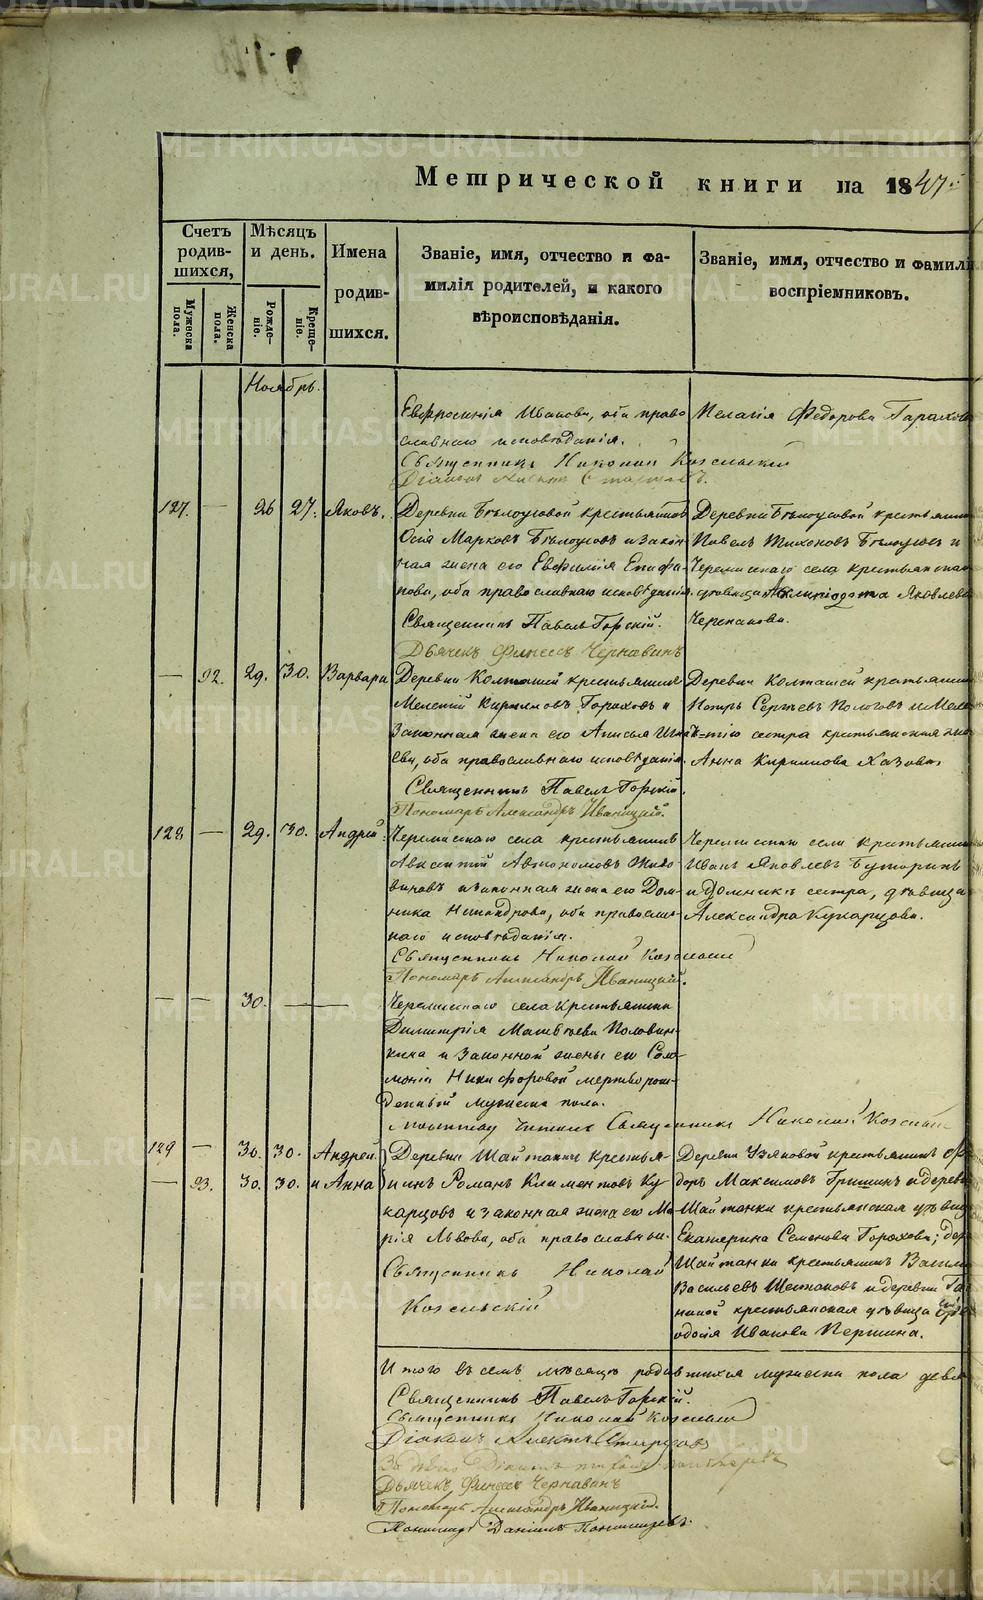 Метрической книги на 1847.
Счетъ родив-шихся,
Мѣсяцъ и день.
Имена родив-шихся.
Званіе, имя, отчество и фа-
милія родителей, и какого
вѣроисповѣданія.
Званіе, имя, отчество и фамилі
воспріемниковъ.
Мужеска пола.
Женска пола.
Рожде-ніе.
Креще-ніе.
Ноябрь.
Евфросинія Иванова, оба право
славнаго исповѣданія.
Пелагія Федорова Горохова
Священникъ Николай Козельскій
Діаконъ
127. — 26 27. Яковъ.
Деревни Бѣлоусовой крестьянинъ
Осія Марковъ Бѣлоусовъ и закон-
ная жена его Евфимія Епифа-
нова, оба православнаго исповѣданія.
Священникъ Павелъ Горскій.
Дьячекъ Финеесъ Чернавинъ
Деревни Бѣлоусовой крестьянинъ
Павелъ Тихоновъ Бѣлоусовъ и
Черемисскаго села крестьянская
дѣвица Яковлева
Черепанова.
— 92. 29. 30. Варвара
Деревни Колташей крестьянинъ
Мелетій Кириловъ Гороховъ и
законная жена его Анисья Игнать
ева, оба православнаго исповѣданія.
Священникъ Павелъ Горскій.
Пономарь Александръ Иваницкій.
Деревни Колташей крестьянинъ
Петръ Сергѣевъ Пологовъ и Меле-
тію сестра крестьянская
Анна Кирилова Хазова
128. — 29. 30. Андрей.
Черемисскаго села крестьянинъ
Авксентій Автономовъ
и законная жена его Дом-
ника Никандрова, оба православ-
наго исповѣданія.
Священникъ Николай Козельскій
Пономарь Александръ Иваницкій.
Черемисскаго села крестьянинъ
Иванъ Яковлевъ Бутаринъ
и Домникѣ сестра, дѣвица
Александра Кукарцова.
— — 30. —
Черемисскаго села крестьянина
Димитрія Матвѣева Половин-
кина и законной жены его Соло-
моніи Никифоровой мертворож-
денный мужеска пола.
Молитву читалъ Священникъ Николай Козельскій
129 — 30. 30. Андрей
— 93. 30. 30. и Анна
Деревни Шайтанки крестья-
нинъ Романъ Климентовъ Ку-
карцовъ и законная жена его Ма-
рія Львова, оба православны.
Священникъ Николай
Козельскій
Деревни Узяновой крестьянинъ Фе
доръ Максимовъ Гришинъ и деревни
Шайтанки крестьянская дѣвица
Екатерина Семенова Горохова; дер
Шайтанки крестьянинъ Васили
Васильевъ Шестаковъ и деревни
крестьянская дѣвица
Иванова Першина.
Итого въ семъ мѣсяцѣ родившихся мужеска пола девя
Священникъ Павелъ Горскій.
Священникъ Николай Козельскій
Діаконъ
Дьячекъ Финеесъ Чернавинъ
Пономарь Александръ Иваницкій.
Пономарь Даніилъ Пономаревъ.
METRIKI.GASO-URAL.RU